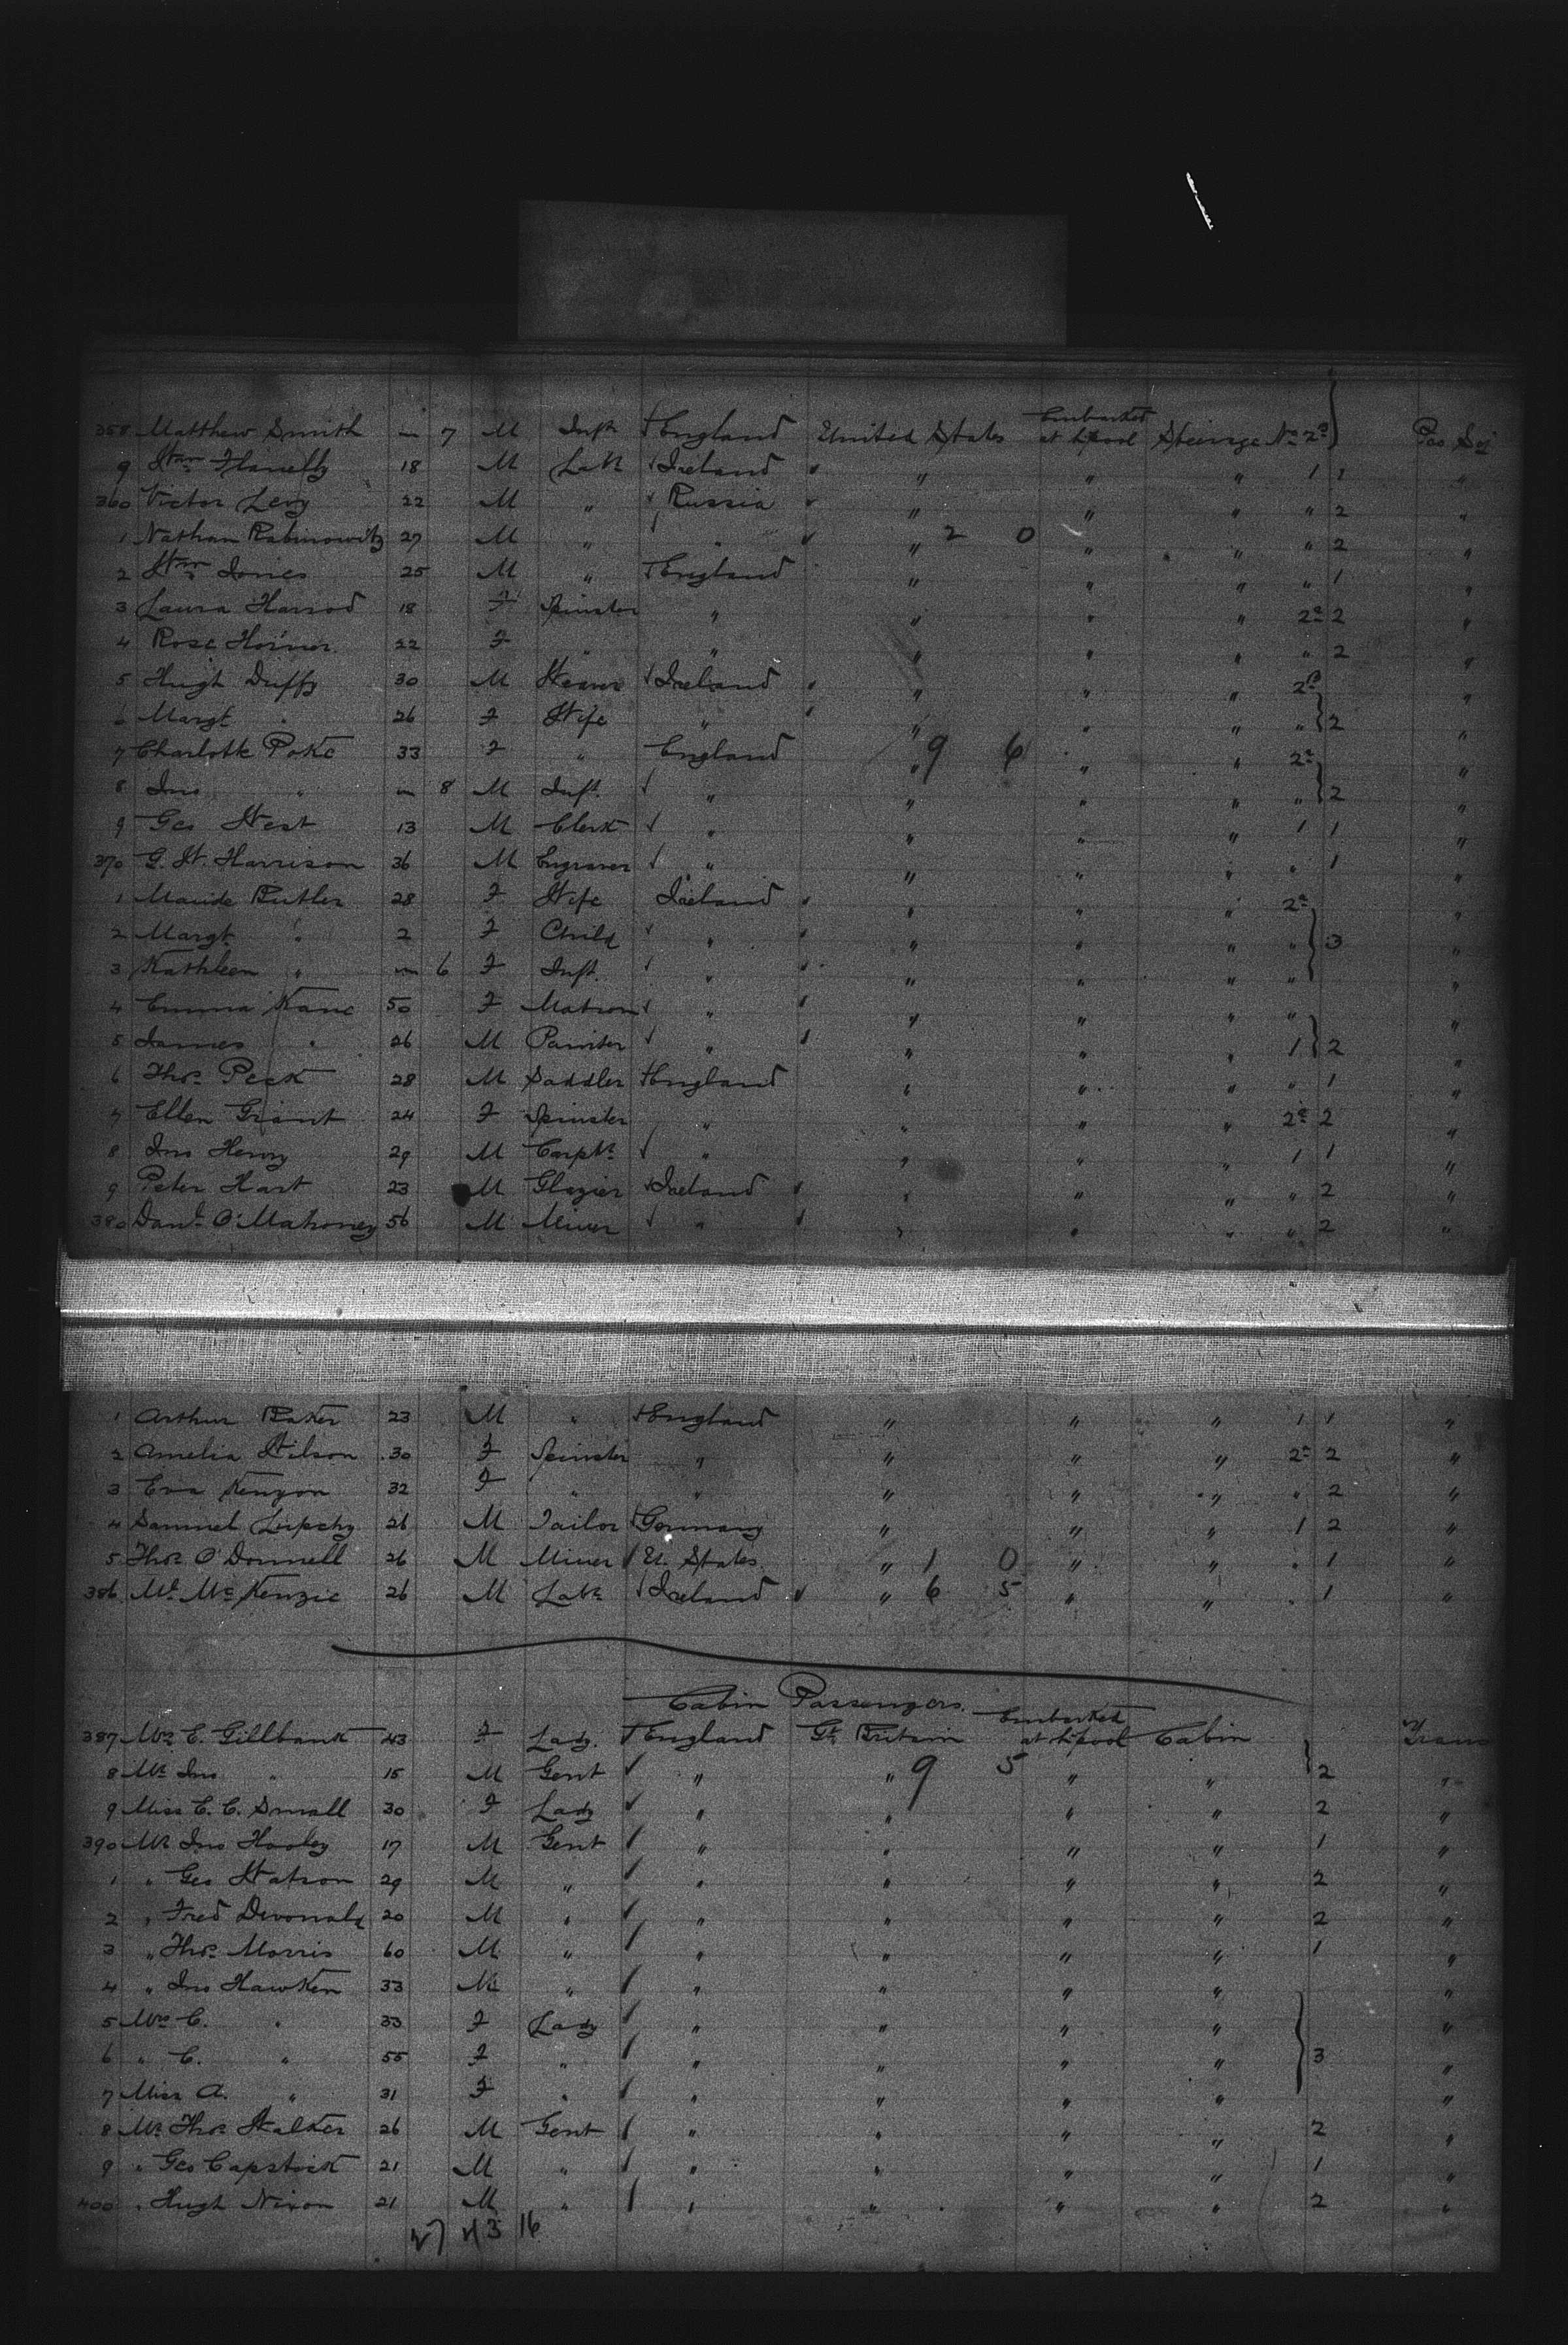 358 Matthew Smith m 7 M Inft England United States Embarked at L'pool Steerage No 2a Pro Soj
9 Wm Flanelly 18 M Labr Ireland " " " 1 1 "
360 Victor Levy 22 M " Russia " " " " 2 "
1 Nathan Rabinowitz 27 M " " " 2 0 " " " 2 "
2 Wm Jones 25 M " England " " " " 1 "
3 Laura Harrod 18 F Spinster " " " " 2a 2 "
4 Rose Horner 22 F " " " " " " 2 "
5 Hugh Duffy 30 M Weaver Ireland " " " 2a "
6 Margt " 26 F Wife " " " " " 2 "
7 Charlotte Poke 33 F " England " 9 6 " " 2a "
8 Jno " m 8 M Inft " " " " " 2 "
9 Geo West 13 M Clerk " " " " 1 1 "
370 G. W. Harrison 36 M Engraver " " " " " 1 "
1 Maude Butler 28 F Wife Ireland " " " 2a "
2 Margt " 2 F Child " " " " " 3 "
3 Kathleen " m 6 F Inft " " " " " "
4 Emma Kane 50 F Matron " " " " " "
5 James " 26 M Painter " " " " 1 2 "
6 Thos Peck 28 M Saddler England " " " " 1 "
7 Ellen Grant 24 F Spinster " " " " 2a 2 "
8 Jno Henry 29 M Carptr " " " " 1 1 "
9 Peter Hart 23 M Glazier Ireland " " " " 2 "
380 Danl O'Mahoney 56 M Miner " " " " " 2 "
1 Arthur Baker 23 M " England " " " 1 1 "
2 Amelia Wilson 30 F Spinster " " " " 2a 2 "
3 Eva Kenyon 32 F " " " " " " 2 "
4 Samuel 26 M Tailor Germany " " " 1 2 "
5 Thos O'Donnell 26 M Miner U. States " 1 0 " " " 1 "
386 McKenzie 26 M Labr Ireland " 6 5 " " " 1 "
Cabin Passengers
387 Mrs E. Gillbank 43 F Lady England Gt Britain Embarked at L'pool Cabin Trans
8 Mr Jno " 15 M Gent " " 9 5 " " 2 "
9 Miss C. C. Small 30 F Lady " " " " 2 "
390 Mr Jno Hooley 17 M Gent " " " " 1 "
1 " Geo Watson 29 M " " " " " 2 "
2 " Fred Devonald 20 M " " " " " 2 "
3 " Thos Morris 60 M " " " " " 1 "
4 " Jno Hawken 33 M " " " " " "
5 Mrs C. " 33 F Lady " " " " "
6 " C. " 55 F " " " " " 3 "
7 Miss A. " 31 F " " " " " "
8 Mr Thos Walker 26 M Gent " " " " 2 "
9 " Geo Capstick 21 M " " " " " 1 "
400 " Hugh Nixon 21 M " " " " " 2 "
27 43 16